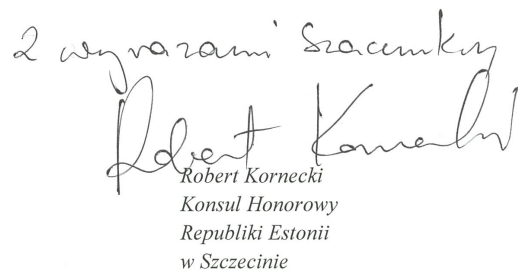 z wyrazami szacunku
Robert Kornecki
Robert Kornecki
Konsul Honorowy
Republiki Estonii
w Szczecinie